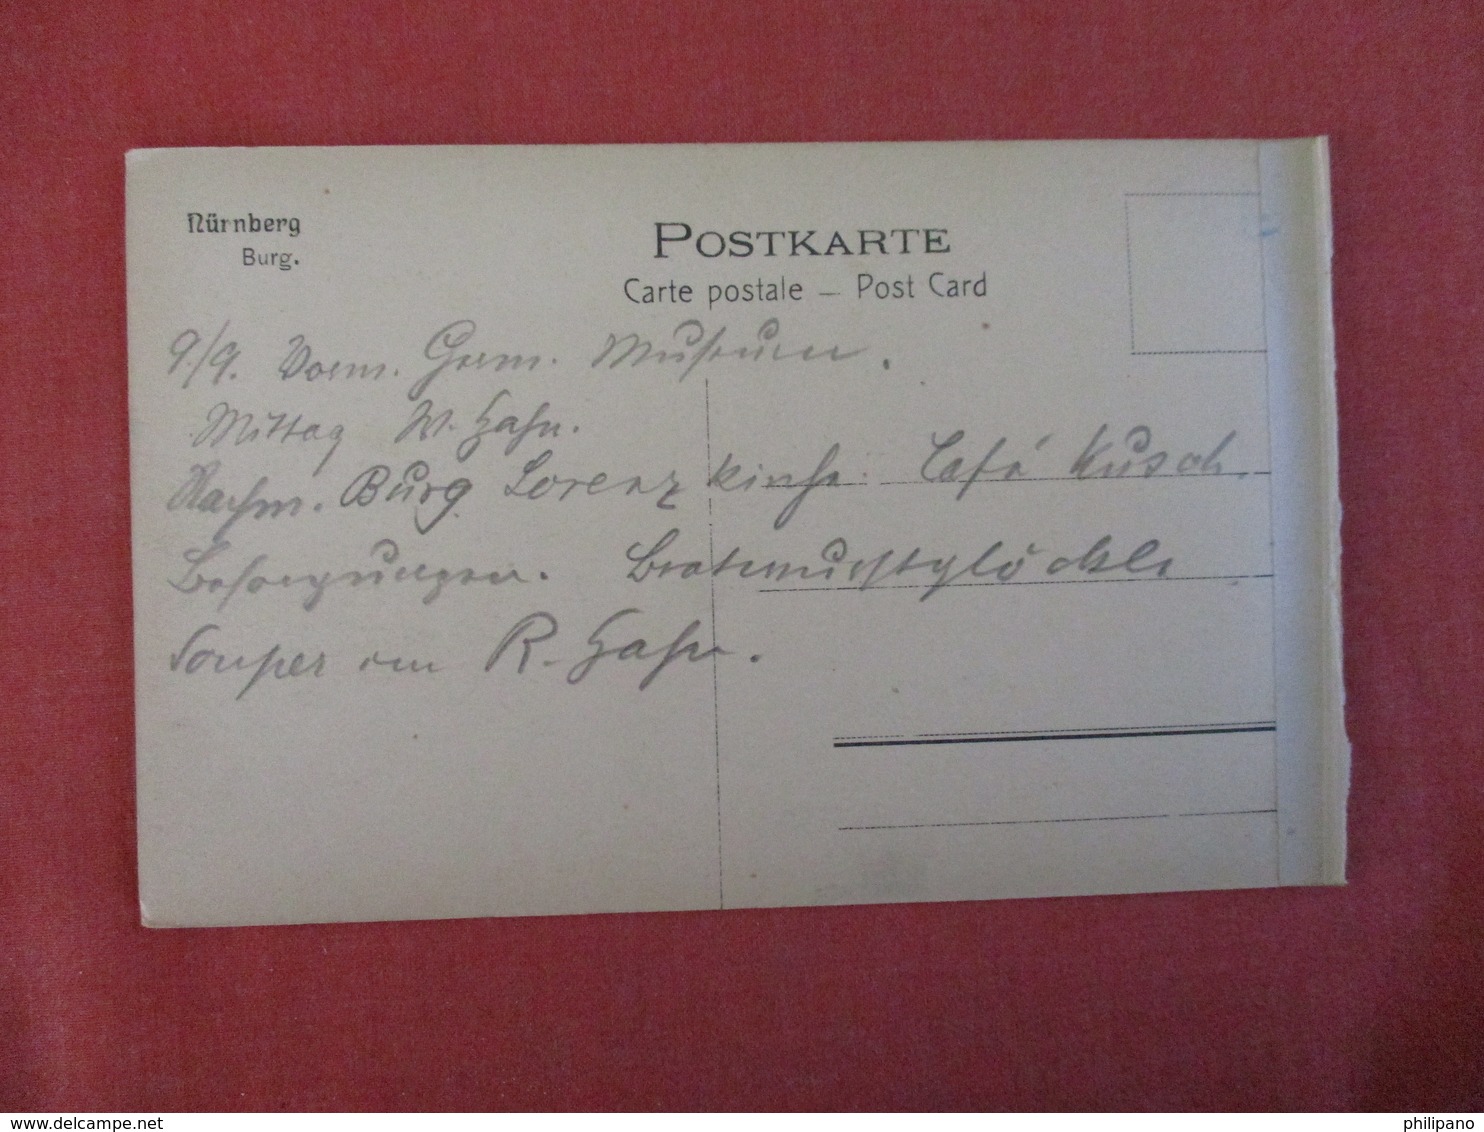 Nürnberg
Burg.
POSTKARTE
Carte postale — Post Card
9./9. Vorm. Germ. Museum.
Mittag W. Hahn.
Nachm. Burg Lorenzkirche. Café Kusch
Besorgungen. Bratwurstglöckle
Souper im R. Hahn.
philipano